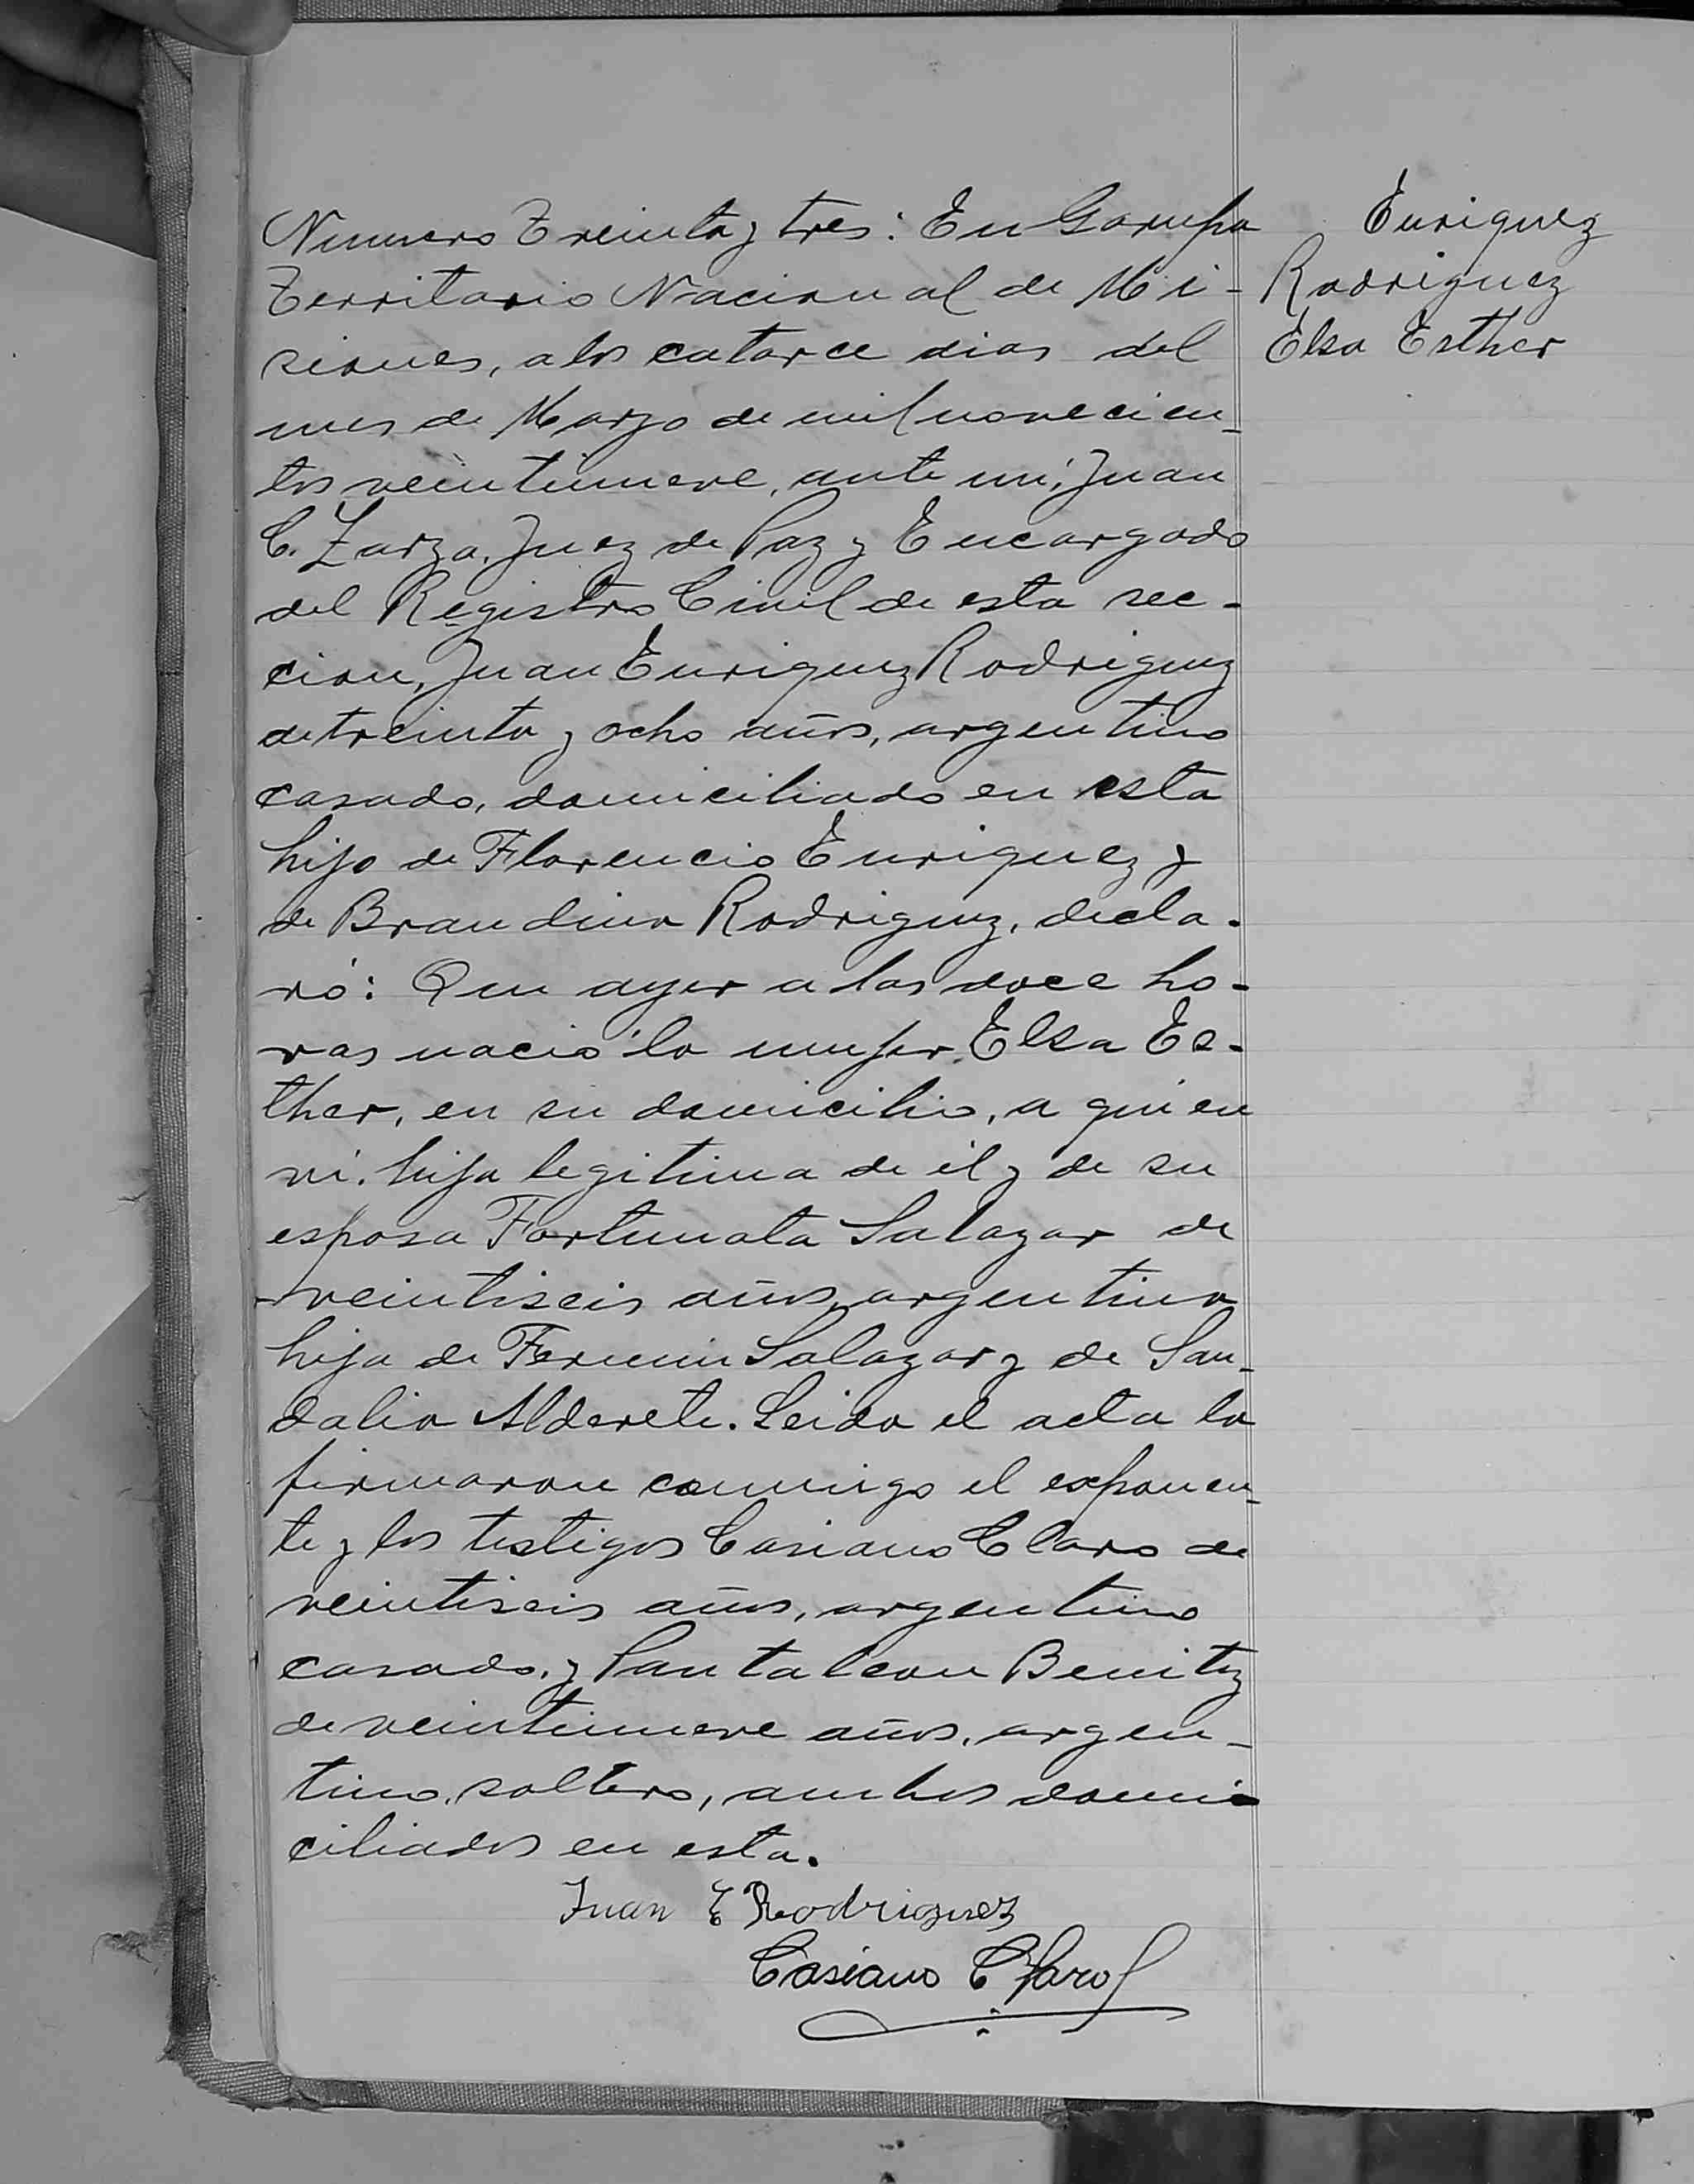 Numero Treinta y tres: En Garupa
Territorio Nacional de Mi-
siones, a los catorce dias del
mes de Marzo de mil novecien-
tos veintinueve, ante mi, Juan
C. Zarza, Juez de Paz y Encargado
del Registro Civil de esta sec-
cion, Juan Enriquez Rodriguez
de treinta y ocho años, argentino
casado, domiciliado en esta
hijo de Florencio Enriquez y
de Brandina Rodriguez, decla-
ró: Que ayer a las doce ho-
ras nació la mujer Elsa Es-
ther, en su domicilio, a quien
vi. hija legitima de él y de su
esposa Fortunata Salazar de
veintiseis años, argentina
hija de Fermin Salazar y de San-
dalia Alderete. Leida el acta la
firmaron conmigo el exponen-
te y los testigos Casiano Claro de
veintiseis años, argentino
casado, y Pantaleon Benitez
de veintinueve años, argen-
tino, soltero, ambos domi-
ciliados en esta.
Juan E Rodriguez
Casiano Claro
Enriquez
Rodriguez
Elsa Esther